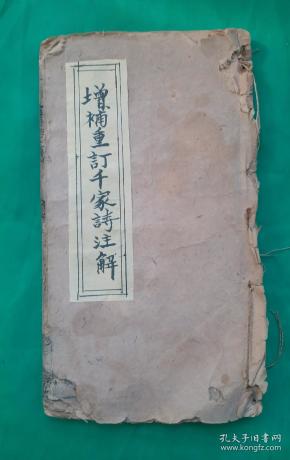 增補重訂千家詩注解
孔夫子旧书网
www.kongfz.com